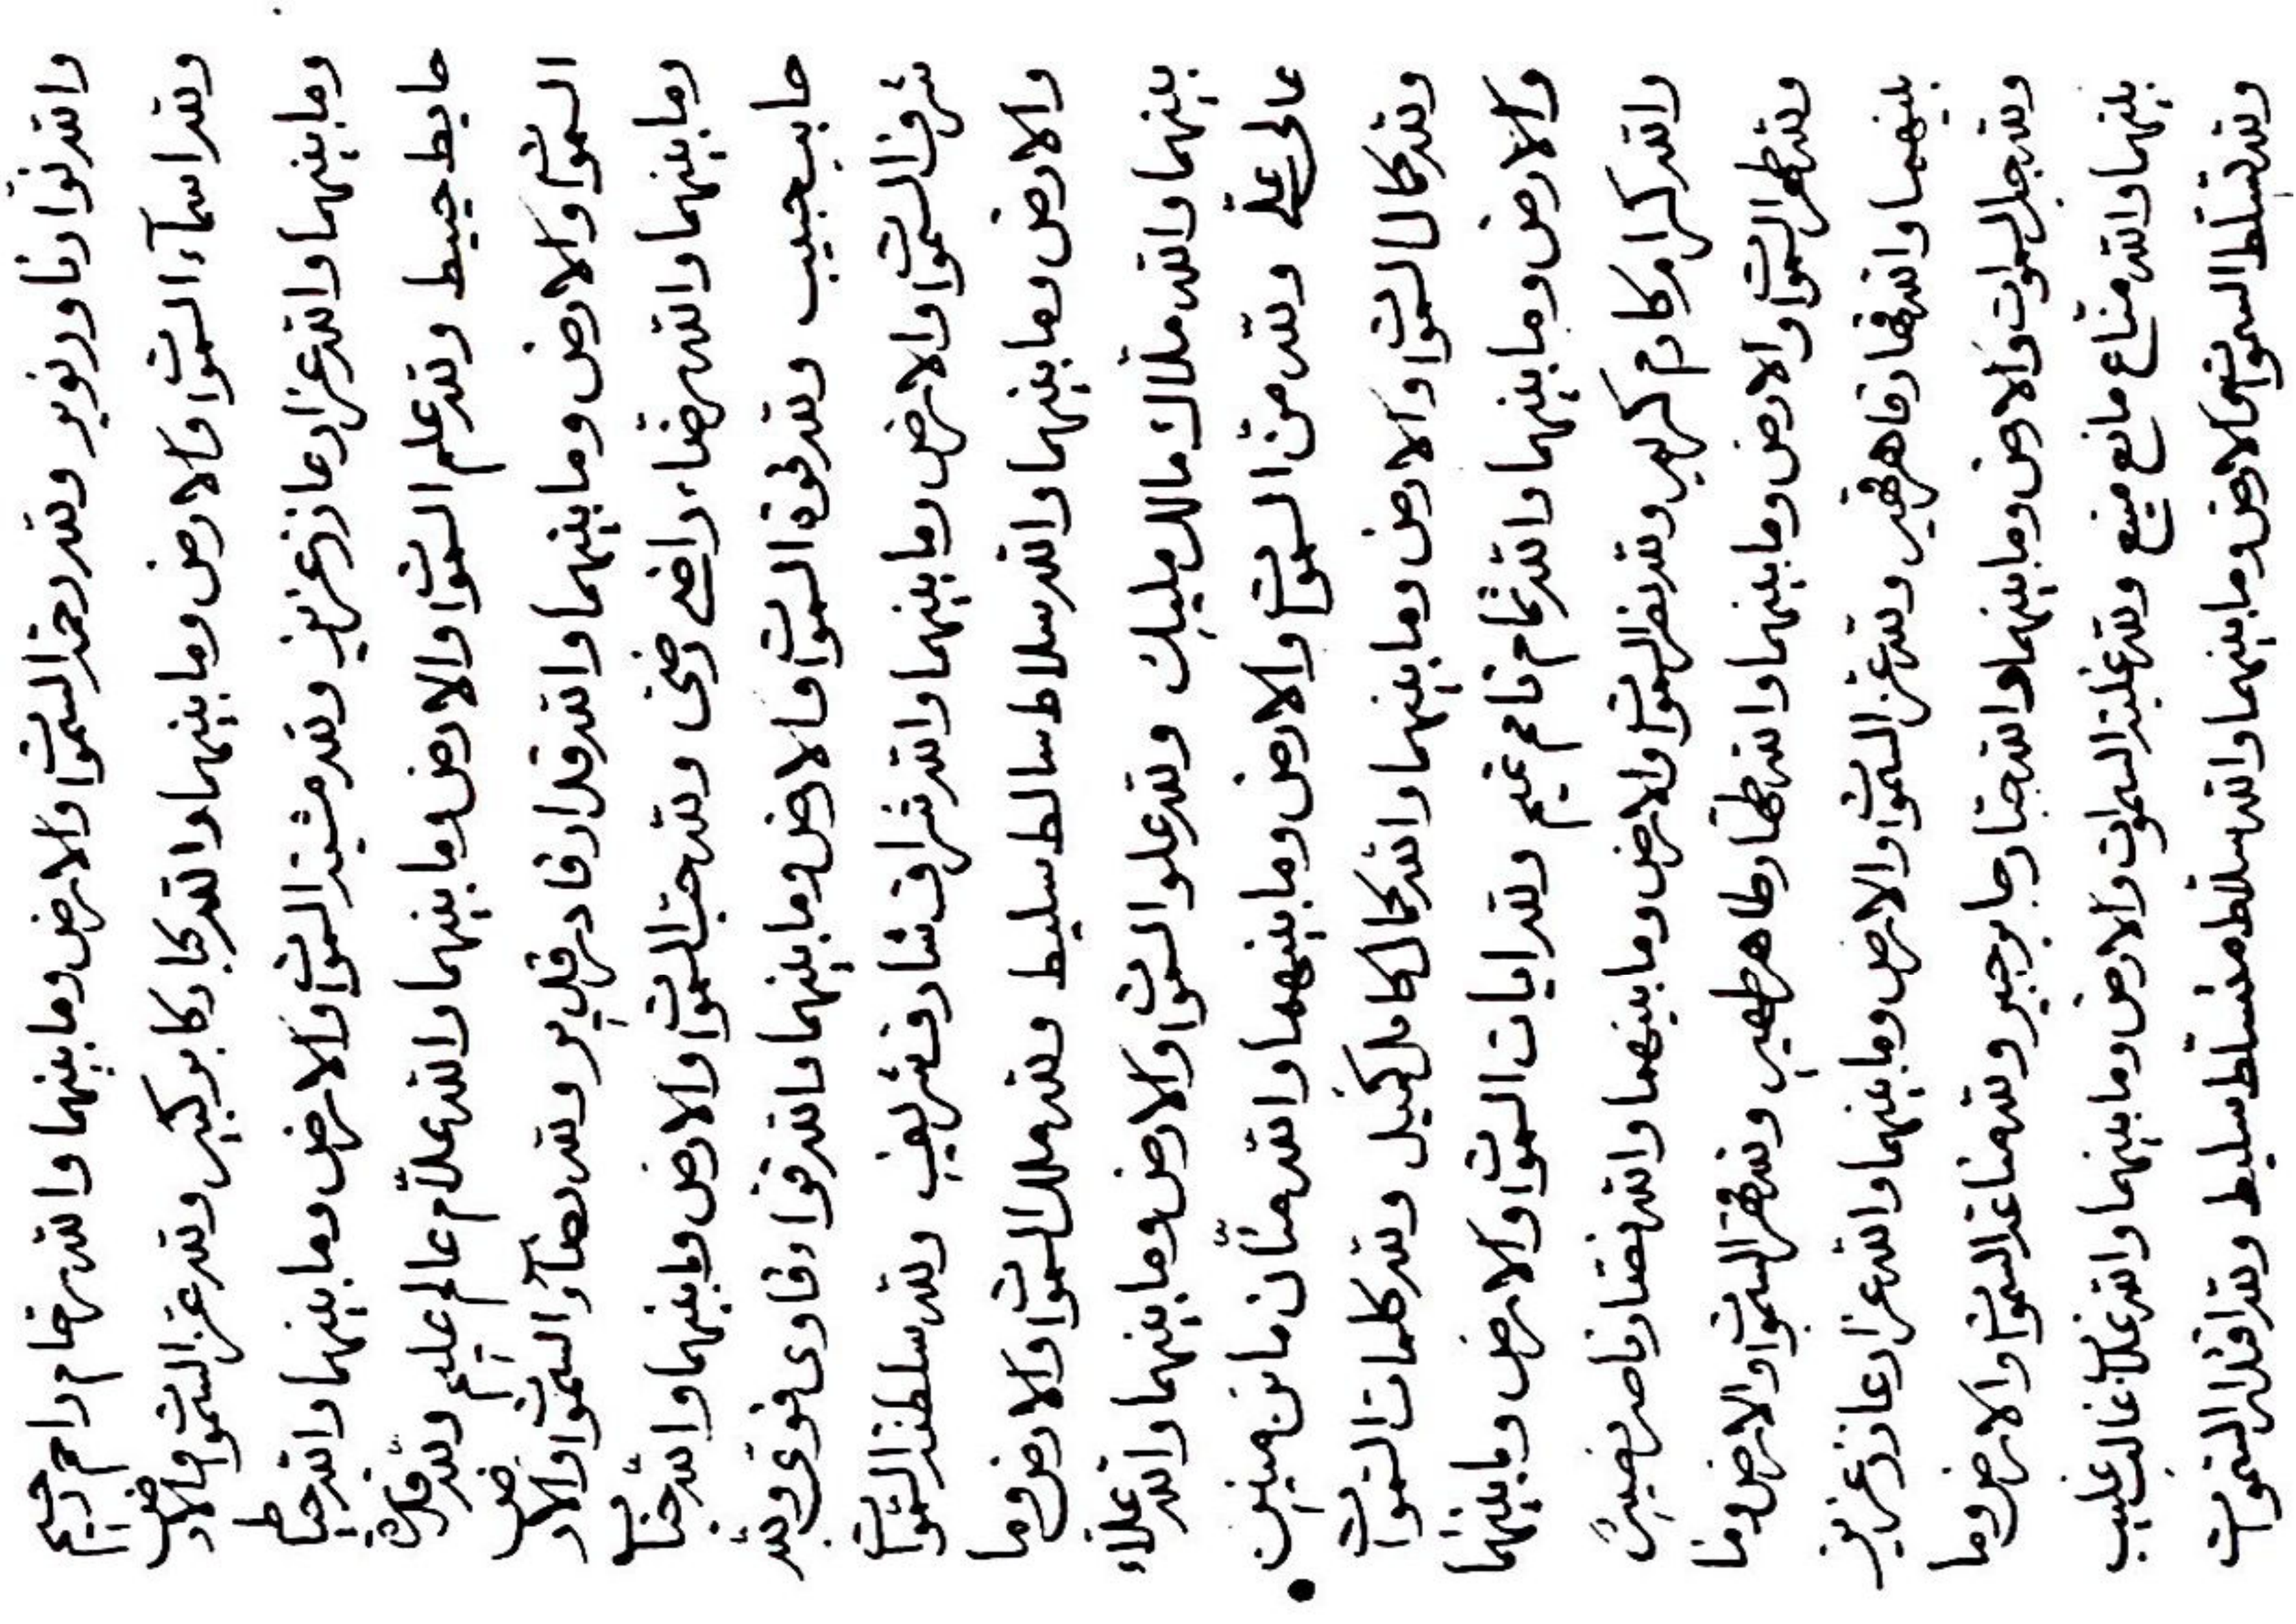 والله نوار ناور نوير ولله رحمة السموات والارض وما بينهما والله رحام راحم رحيم
ولله اسمآء السموات والارض وما بينهما والله كبار كابر كبير ولله عزة السموات والارض
وما بينهما والله عزاز عازز عزيز ولله مشية السموات والارض وما بينهما والله حياط
حايط حييط ولله علم السموات والارض وما بينهما والله علّام عالم عليم ولله قدرة
السموات والارض وما بينهما والله قدار قادر قدير ولله رضآء السموات والارض
وما بينهما والله رضاء راضي رضي ولله حب السموات والارض وما بينهما والله حباب
حابب حبيب ولله قوة السموات والارض وما بينهما والله قواء قاوي قوي ولله
شرف السموات والارض وما بينهما والله شراف شارف شريف ولله سلطنة السموات
والارض وما بينهما والله سلاط سالط سليط ولله ملك السموات والارض وما
بينهما والله ملاك مالك مليك ولله علو السموات والارض وما بينهما والله علاء
عالي علي ولله من السموات والارض وما بينهما والله منّان مانن منين •
ولله كمال السموات والارض وما بينهما والله كمال كامل كميل ولله كلمات السموات
والارض وما بينهما والله تمام تامم تميم ولله ايات السموات والارض وما بينهما
والله كرام كارم كريم ولله نصر السموات والارض وما بينهما والله نصار ناصر نصير
ولله ظهر السموات والارض وما بينهما والله ظهار ظاهر ظهير ولله قهر السموات والارض وما
بينهما والله قهار قاهر قهير ولله عز السموات والارض وما بينهما والله عزاز عازز عزيز
ولله جبل السموات والارض وما بينهما والله جبار جابر جبير ولله مناعة السموات والارض وما
بينهما والله مناع مانع منيع ولله غلبة السموات والارض وما بينهما والله غلاب غالب غليب
ولله تسلط السموات والارض وما بينهما والله سلاط مسلط سليط ولله اقتدار السموات